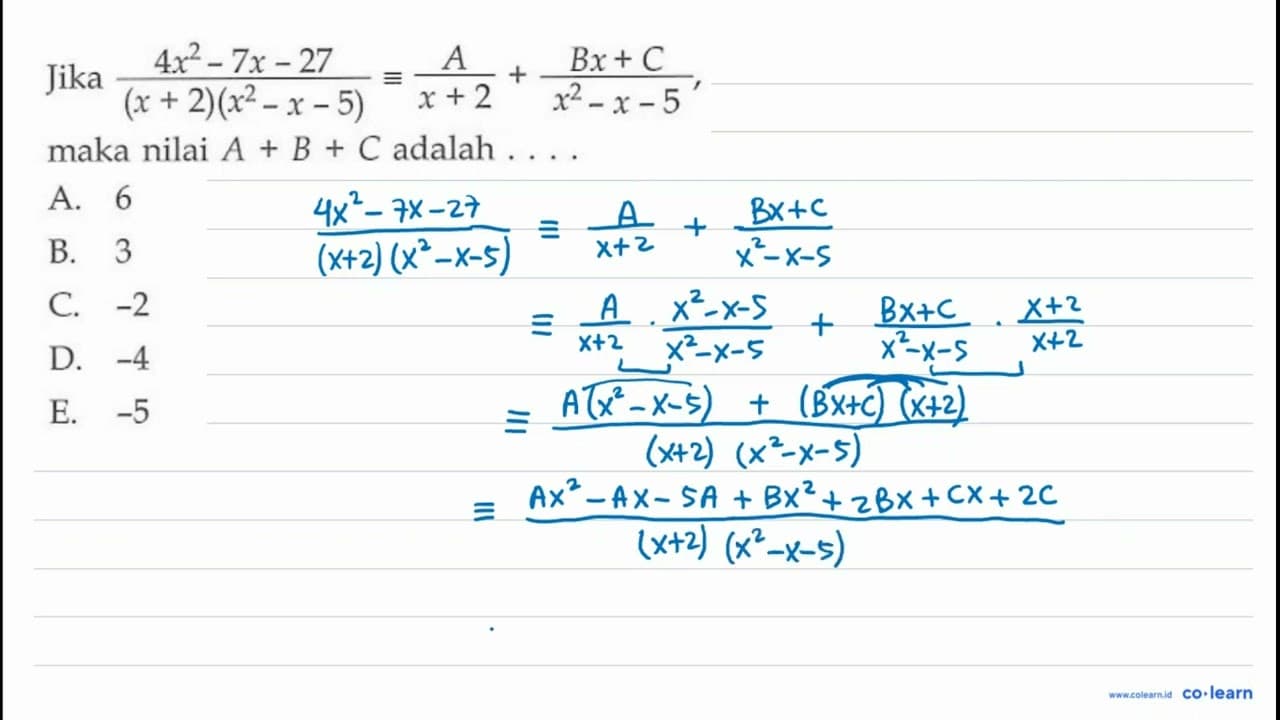 Jika (4x² – 7x – 27)/((x + 2)(x² – x – 5)) ≡ A/(x + 2) + (Bx + C)/(x² – x – 5),
maka nilai A + B + C adalah . . . .
A. 6
B. 3
C. –2
D. –4
E. –5
(4x² – 7x – 27)/((x+2)(x² – x – 5)) ≡ A/(x+2) + (Bx+C)/(x² – x – 5)
≡ A/(x+2) · (x² – x – 5)/(x² – x – 5) + (Bx+C)/(x² – x – 5) · (x+2)/(x+2)
≡ (A(x² – x – 5) + (Bx+C)(x+2))/((x+2)(x² – x – 5))
≡ (Ax² – Ax – 5A + Bx² + 2Bx + Cx + 2C)/((x+2)(x² – x – 5))
www.colearn.id co·learn